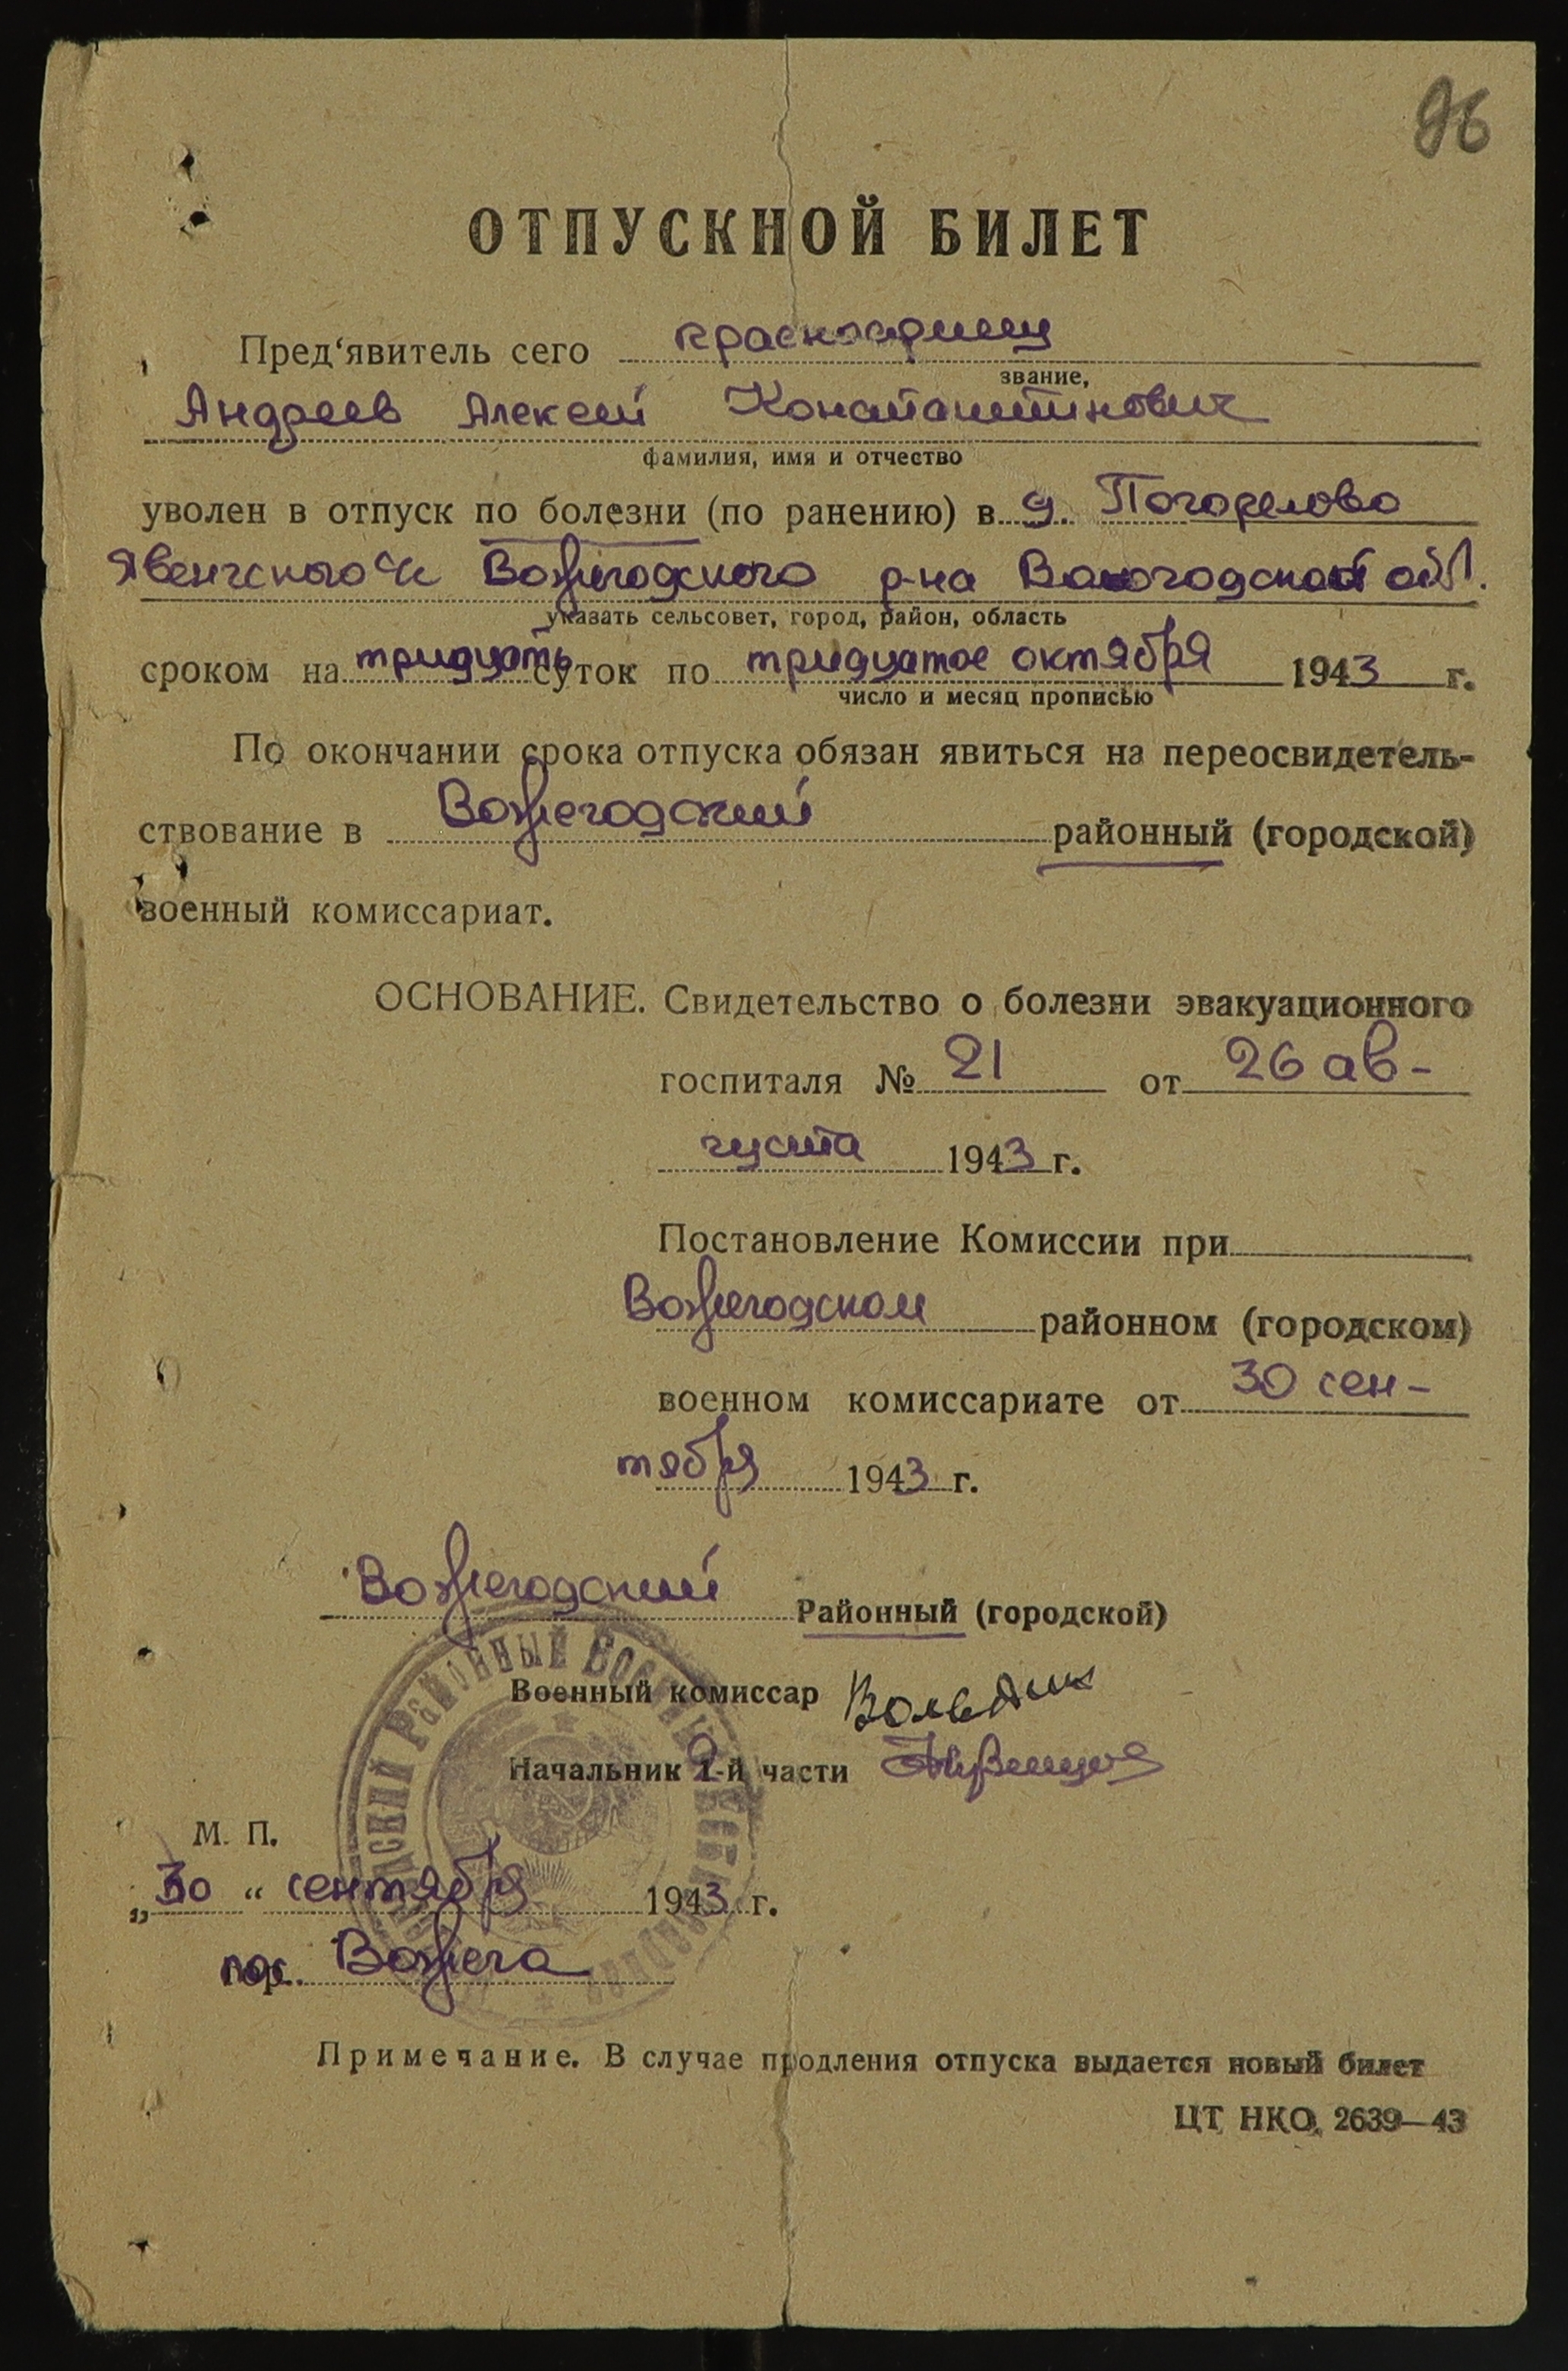 96
ОТПУСКНОЙ БИЛЕТ
Пред'явитель сего красноармеец
звание,
Андреев Алексей Константинович
фамилия, имя и отчество
уволен в отпуск по болезни (по ранению) в д. Погорелово
Явенгского с/с Вожегодского р-на Вологодской обл.
указать сельсовет, город, район, область
сроком на тридцать суток по тридцатое октября 1943 г.
число и месяц прописью
По окончании срока отпуска обязан явиться на переосвидетель-
ствование в Вожегодский районный (городской)
военный комиссариат.
ОСНОВАНИЕ. Свидетельство о болезни эвакуационного
госпиталя № 21 от 26 ав-
густа 1943 г.
Постановление Комиссии при
Вожегодском районном (городском)
военном комиссариате от 30 сен-
тября 1943 г.
Вожегодский Районный (городской)
Военный комиссар
Начальник 2-й части
М. П.
„30" сентября 1943 г.
пос. Вожега
Примечание. В случае продления отпуска выдается новый билет
ЦТ НКО, 2639—43